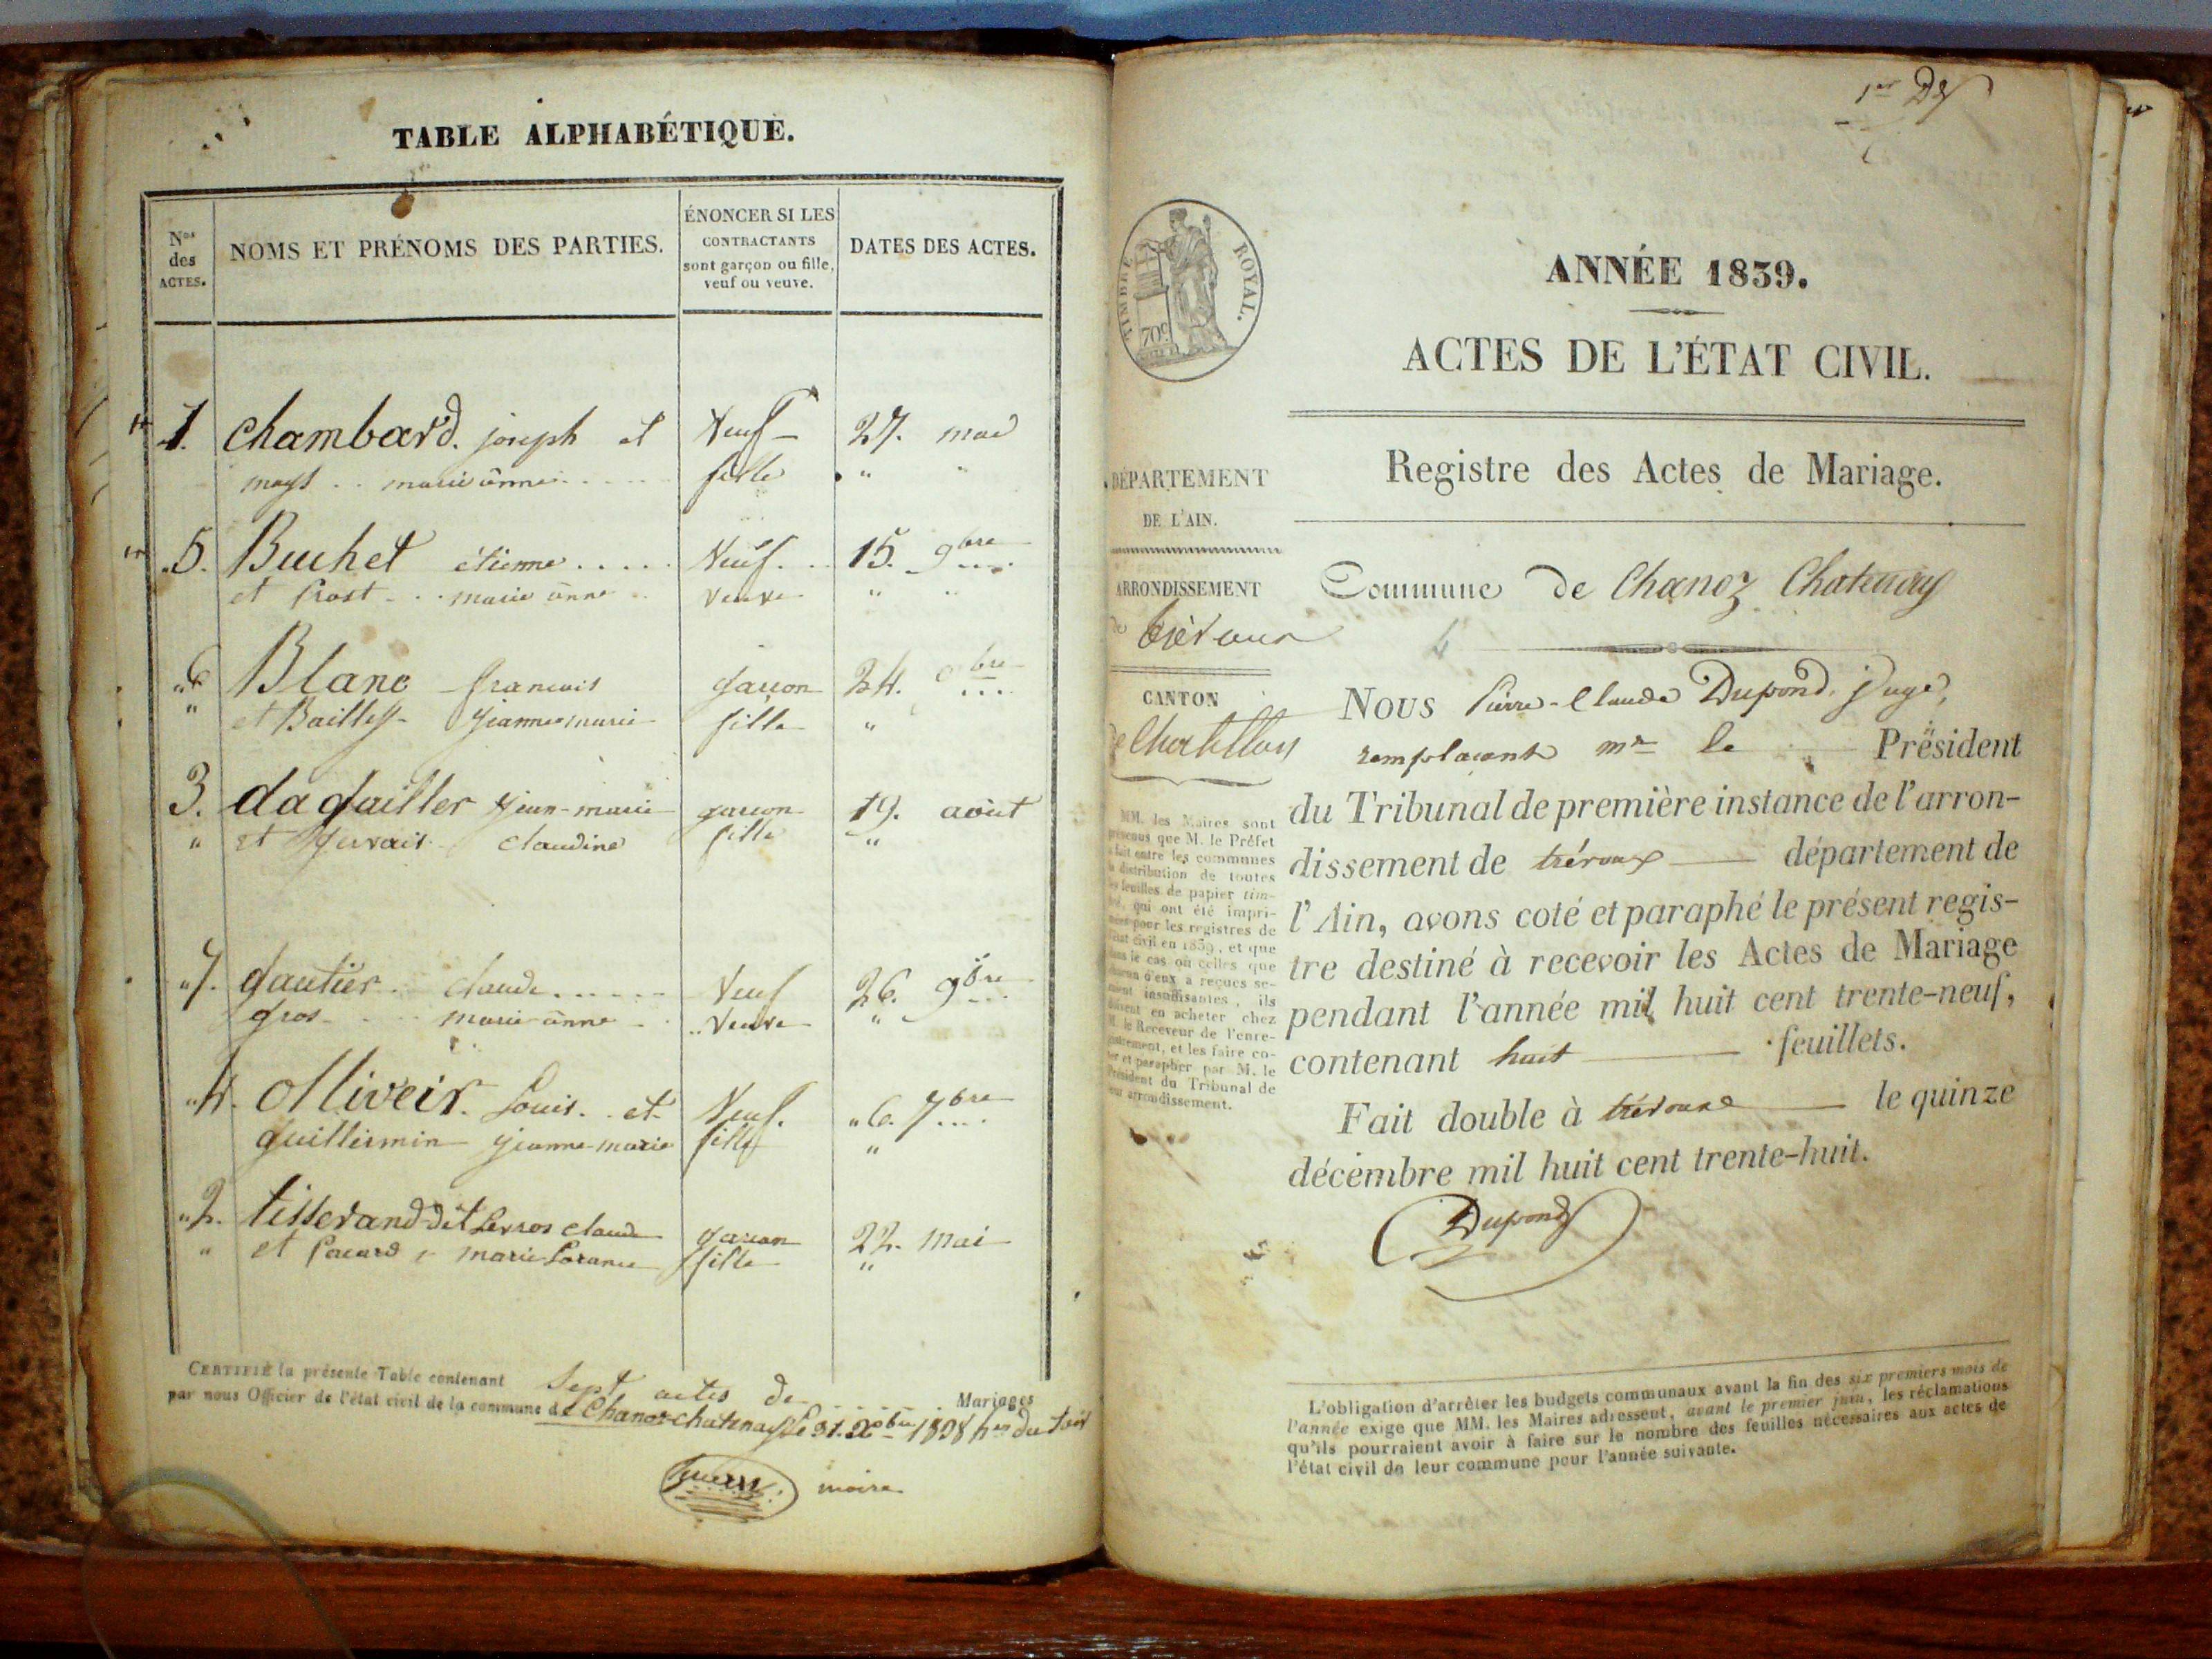 TABLE ALPHABÉTIQUE.
Nos des ACTES.
NOMS ET PRÉNOMS DES PARTIES.
ÉNONCER SI LES
CONTRACTANTS
sont garçon ou fille,
veuf ou veuve.
DATES DES ACTES.
1. Chambard. joseph et Veuf 27.
marie anne fille "
5. Buchet étienne Veuf. 15. 9bre
et Prost marie anne veuve "
6 Blanc francois garcon 24. bre
" et Bailly jeanne marie fille "
3. dagailler jean-marie garcon 19. août
" et gervais claudine fille "
7. gautier claude Veuf 26. 9bre
gros marie anne veuve "
4. Olliveir. Louis. et Veuf. 6. 7bre
guillermin jeanne-marie fille "
2. tisserand dit claude garcon 22. mai
" et marie fille "
CERTIFIÉ la présente Table contenant Sept actes de Mariages
par nous Officier de l'état civil de la commune de Chanoz-chatenay le 31. 1838
maire
1er
TIMBRE ROYAL.
70c
ANNÉE 1839.
ACTES DE L'ÉTAT CIVIL.
Registre des Actes de Mariage.
DÉPARTEMENT
DE L'AIN.
ARRONDISSEMENT
de trévoux
CANTON
de Chatillon
Commune de Chanoz Chatenay
Nous Pierre-Claude Dupond, juge,
remplaçant mr le Président
du Tribunal de première instance de l'arron-
dissement de trévoux département de
l'Ain, avons coté et paraphé le présent regis-
tre destiné à recevoir les Actes de Mariage
pendant l'année mil huit cent trente-neuf,
contenant huit feuillets.
Fait double à trévoux le quinze
décembre mil huit cent trente-huit.
Dupond
MM. les Maires sont
prévenus que M. le Préfet
a fait entre les communes
la distribution de toutes
les feuilles de papier tim-
bré, qui ont été impri-
mées pour les registres de
l'état civil en 1839, et que
dans le cas où celles que
chacun d'eux a reçues se-
raient insuffisantes, ils
doivent en acheter chez
M. le Receveur de l'enre-
gistrement, et les faire co-
ter et parapher par M. le
Président du Tribunal de
leur arrondissement.
L'obligation d'arrêter les budgets communaux avant la fin des six premiers mois de
l'année exige que MM. les Maires adressent, avant le premier juin, les réclamations
qu'ils pourraient avoir à faire sur le nombre des feuilles nécessaires aux actes de
l'état civil de leur commune pour l'année suivante.